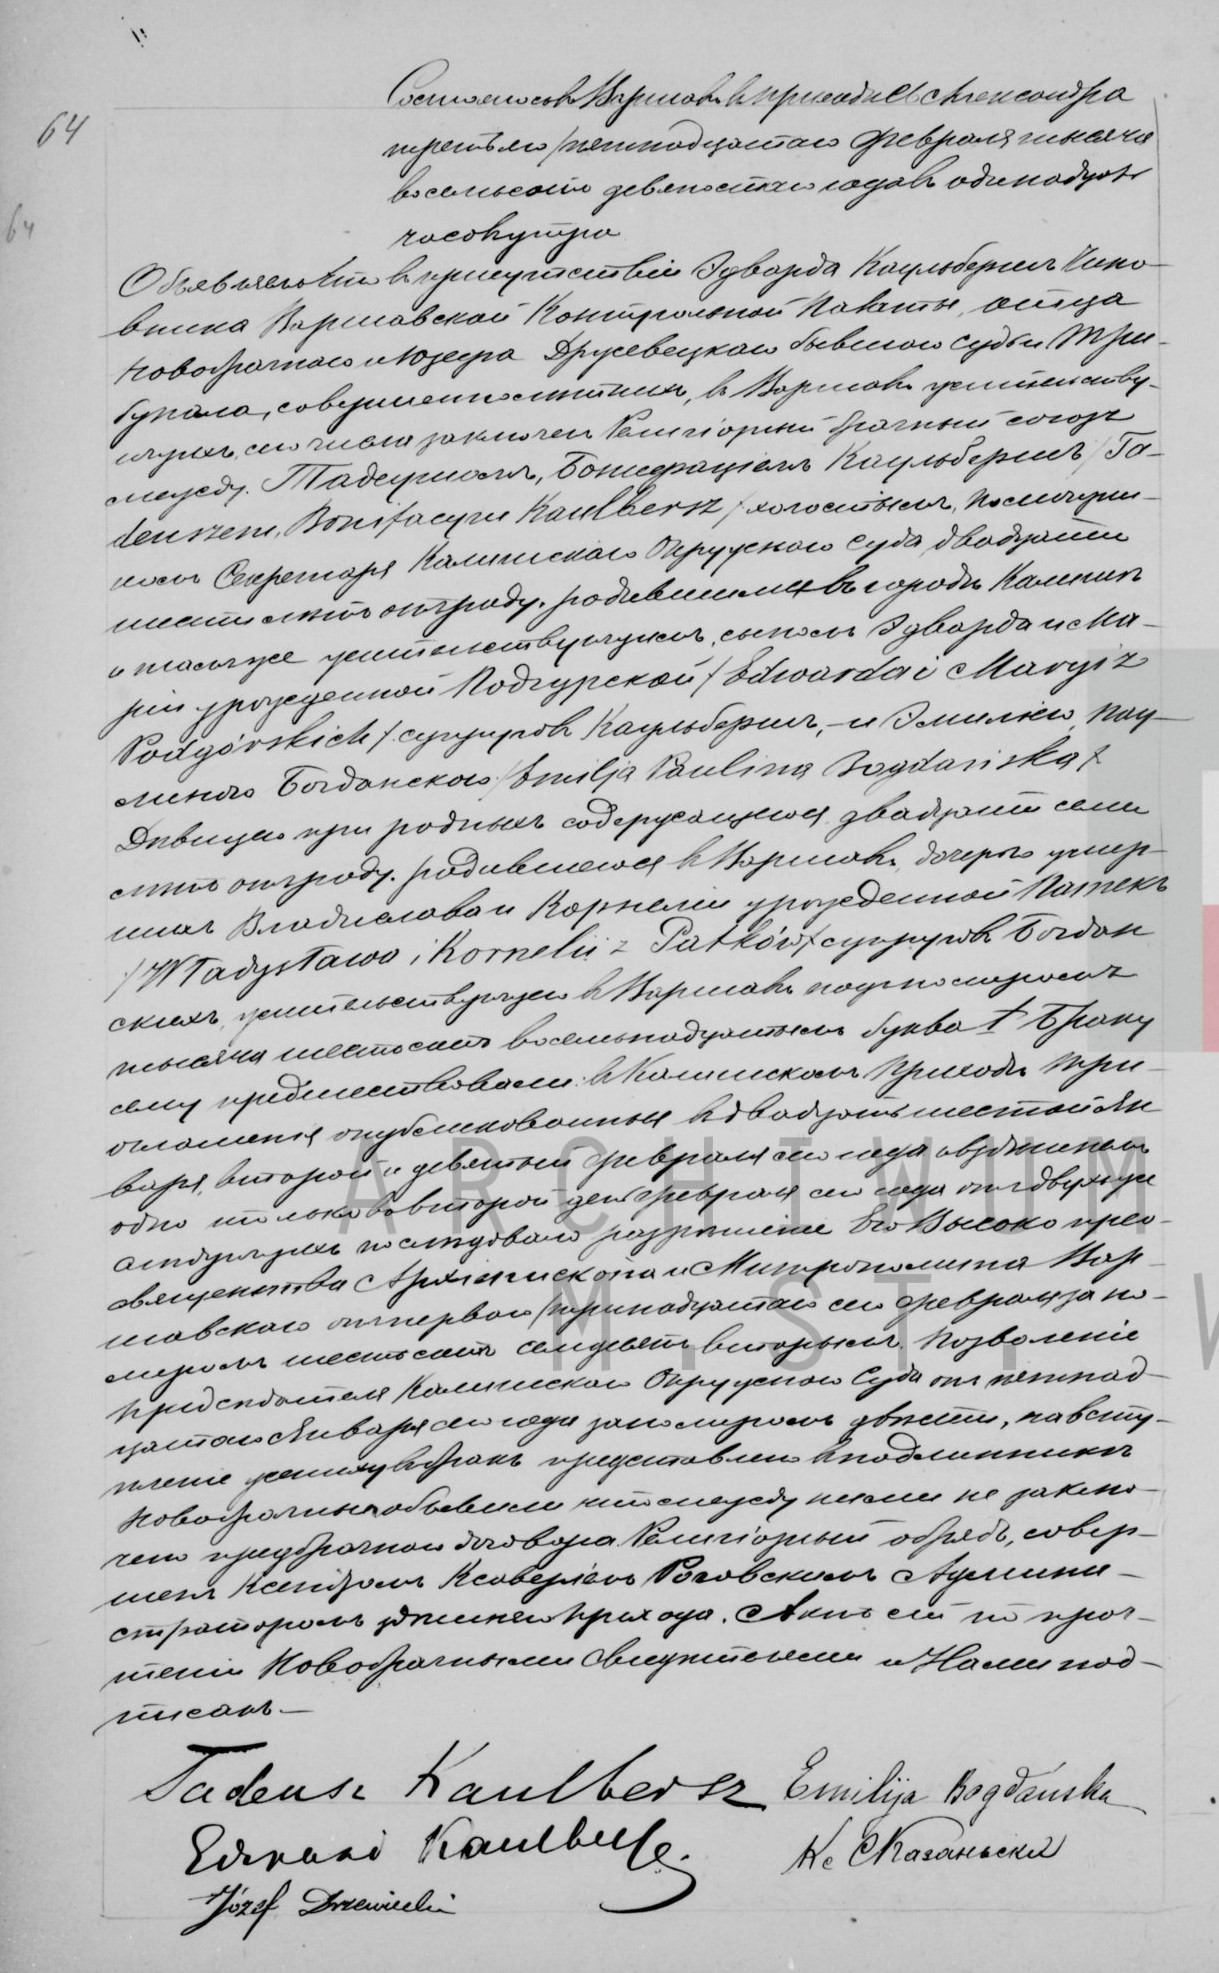 64
64
Состоялось въ Варшавѣ въ приходѣ Св Александра
третьяго /пятнадцатаго Февраля тысяча
восемьсотъ девяностаго года въ одинадцать
часовъ утра
Объявляемъ что въ присутствіи Эдварда Каульбершъ Чино-
вника Варшавской Контрольной Палаты, отца
новобрачнаго и Юзефа Држевецкаго бывшаго судьи Три-
бунала, совершеннолѣтнихъ, въ Варшавѣ жительству-
ющихъ, сего числа заключенъ Религіозный брачный союзъ
между. Тадеушомъ, Бонифаціемъ Каульбершъ /Ta-
deuszem, Bonifacym Kaulbersz/ холостымъ, Помощни-
комъ Секретаря Калишскаго Окружнаго Суда двадцати
шести лѣтъ отъ роду. родившимся въ городѣ Калишѣ
и тамъ же жительствующимъ, сыномъ Эдварда и Ма-
ріи урожденной Подгурской /Edwarda i Maryi z
Podgórskich/ супруговъ Каульбершъ, и Эмиліею, Пау-
линою Богданскою /Emilja Paulina Bogdańska/
Дѣвицею при родныхъ содержащеюся двадцати семи
лѣтъ отъ роду. родившеюся въ Варшавѣ, дочерью умер-
шихъ Владислава и Корнеліи урожденной Патекъ
/Władysława i Kornelii z Patków/ супруговъ Богдан
скихъ, жительствующею въ Варшавѣ подъ номеромъ
тысяча шестьсотъ восемьнадцатымъ буква f Браку
сему предшествовали: въ Калишскомъ Приходѣ три
оглашенія опубликованныя въ двадцать шестой Ян
варя, второй и девятый Февраля сего года а въ здѣшнемъ
одно только во второй день Февраля сего года отъ двухъ же
слѣдующихъ послѣдовало разрѣшеніе Его Высокопрео-
священства Архіепископа и Митрополита Вар-
шавскаго отъ перваго /тринадцатаго сего Февраля за но-
меромъ шестьсотъ семдесятъ вторымъ. Позволеніе
Предсѣдателя Калишскаго Окружнаго Суда отъ пятнад-
цатаго Января сего года за номеромъ двѣсти, на всту-
пленіе жениху въ бракъ представлено въ подлинникѣ
Новобрачные объявили что между ними не заклю-
чено предбрачнаго договора Религіозный обрядъ, совер-
шенъ Ксендзомъ Ксаверіемъ Роговскимъ Админи-
страторомъ здѣшняго прихода. Актъ сей по проч-
теніи Новобрачными Свидѣтелями и Нами под-
писанъ.—
Tadeusz Kaulbersz Emilija Bogdańska
Edward Kaulbersz.
Józef Drzewiecki
ARCHIWUM
M. ST. W